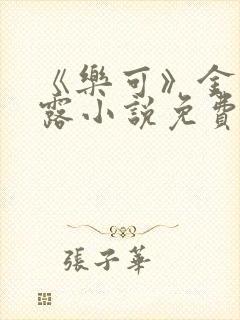 《樂可》金
露小說免費
張子華